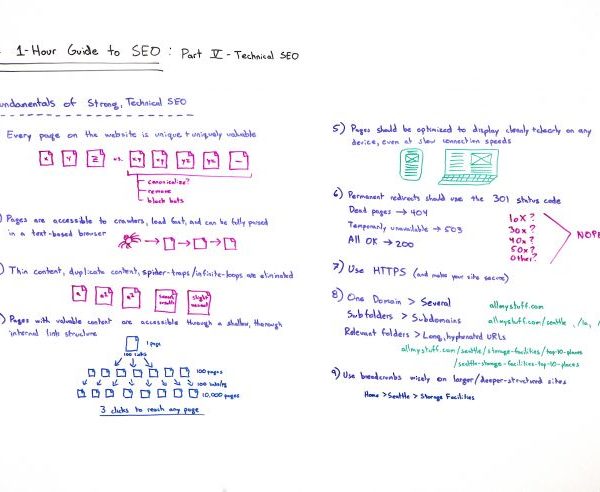 1-Hour Guide to SEO: Part V - Technical SEO
undamentals of Strong, Technical SEO
Every page on the website is unique + uniquely valuable
X Y Z vs. xy xy yz yz ...
canonicalize?
remove
block bots
) Pages are accessible to crawlers, load fast, and can be fully parsed
in a text-based browser
) Thin content, duplicate content, spider-traps/infinite-loops are eliminated
) Pages with valuable content are accessible through a shallow, thorough
internal link structure
1 page
100 links
100 pages
100 links/pg
10,000 pages
3 clicks to reach any page
5) Pages should be optimized to display cleanly + clearly on any
device, even at slow connection speeds
6) Permanent redirects should use the 301 status code
Dead pages → 404
Temporarily unavailable → 503
All OK → 200
10x?
30x?
40x?
50x?
Other?
NOPE
7) Use HTTPS (and make your site secure)
8) One Domain > Several
allmystuff.com
Subfolders > Subdomains
allmystuff.com/seattle, /la,
Relevant folders > Long, hyphenated URLs
allmystuff.com/seattle/storage-facilities/top-10-places
/seattle-storage-facilities-top-10-places
9) Use breadcrumbs wisely on larger/deeper-structured sites
Home > Seattle > Storage Facilities